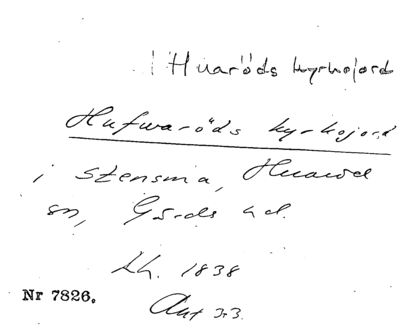 Huaröds kyrkojord
Hufwaröds kyrkojord
i Stensma, Huaröd
sn, Gärds hd.
Lh. 1838
Nr 7826.